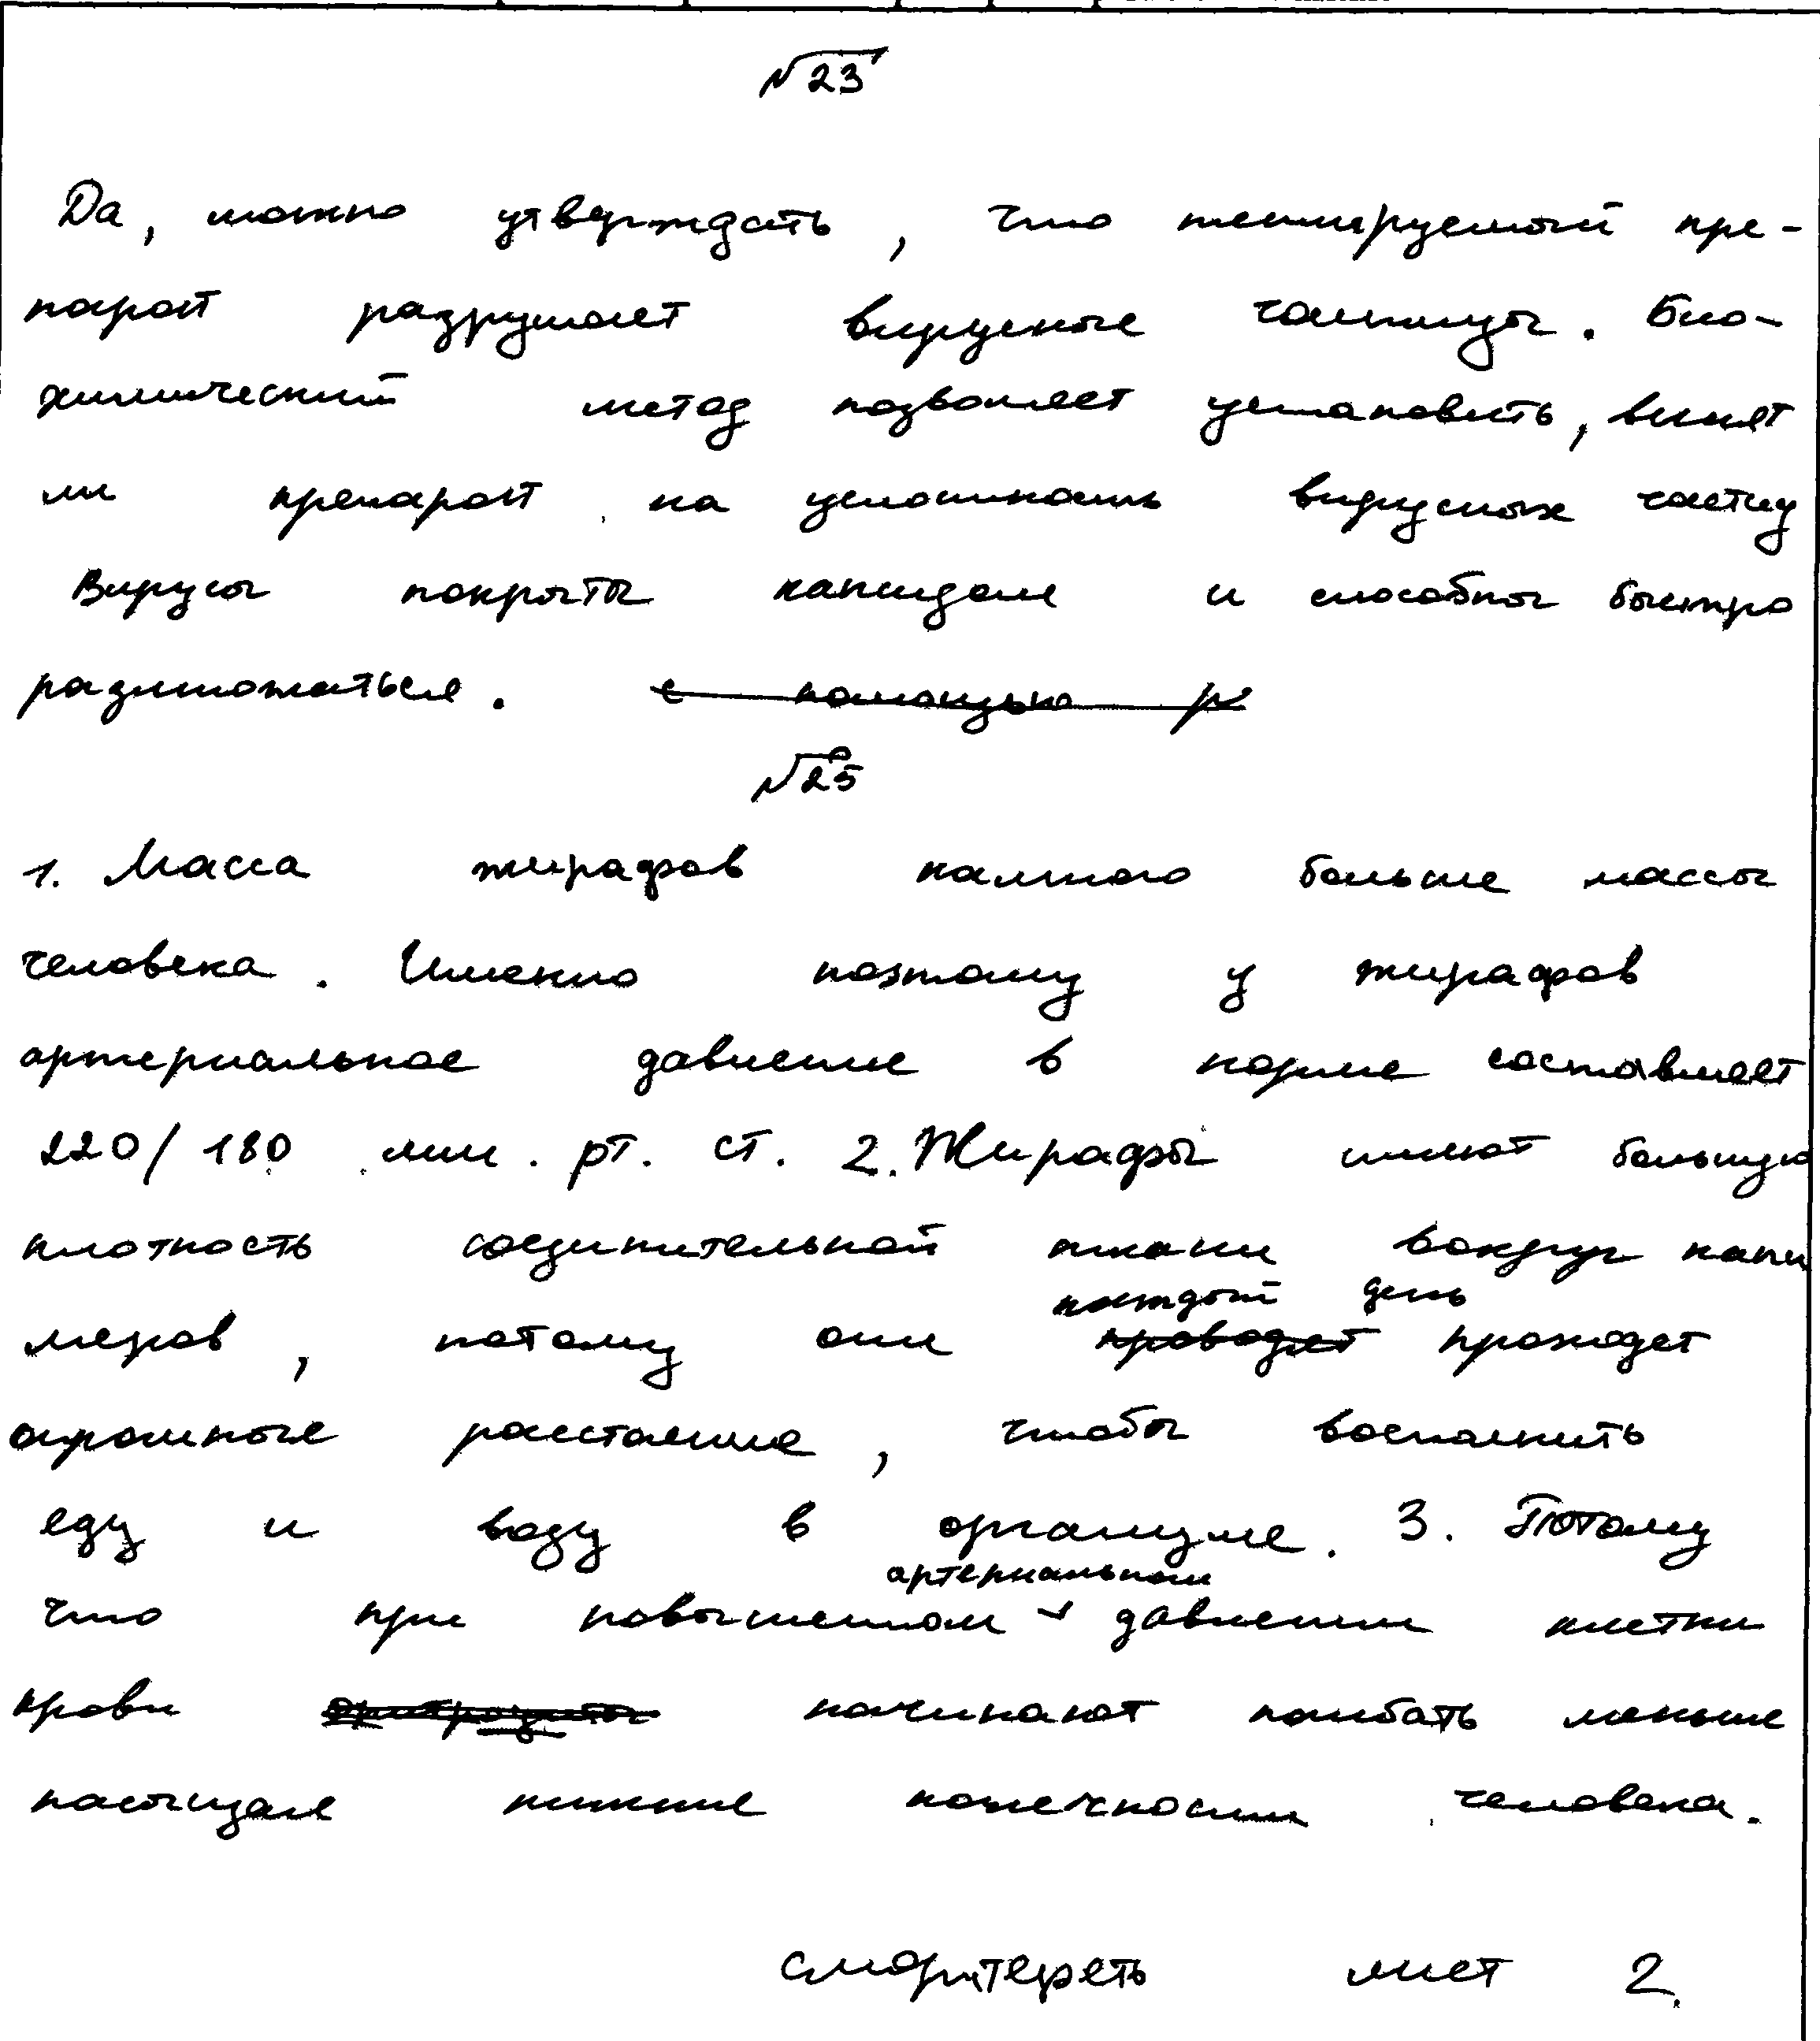 №23
Да, можно утверждать, что тестируемый пре-
парат разрушает вирусные частицы. Био-
химический метод позволяет установить, влияет
ли препарат на численность вирусных частиц
Вирусы покрыты капсидом и способны быстро
размножаться. с помощью р
№25
1. Масса жирафов намного больше массы
человека. Именно поэтому у жирафов
артериальное давление в норме составляет
220/180 мм. рт. ст. 2. Жирафы имеют большую
плотность соединительной ткани вокруг капи
ляров, потому они каждый день проходят
огромные расстояние, чтобы восполнить
еду и воду в организме. 3. Потому
что при повышенном артериальном давлении клетки
крови начинают меньше
нижние конечности человека.
лист 2.